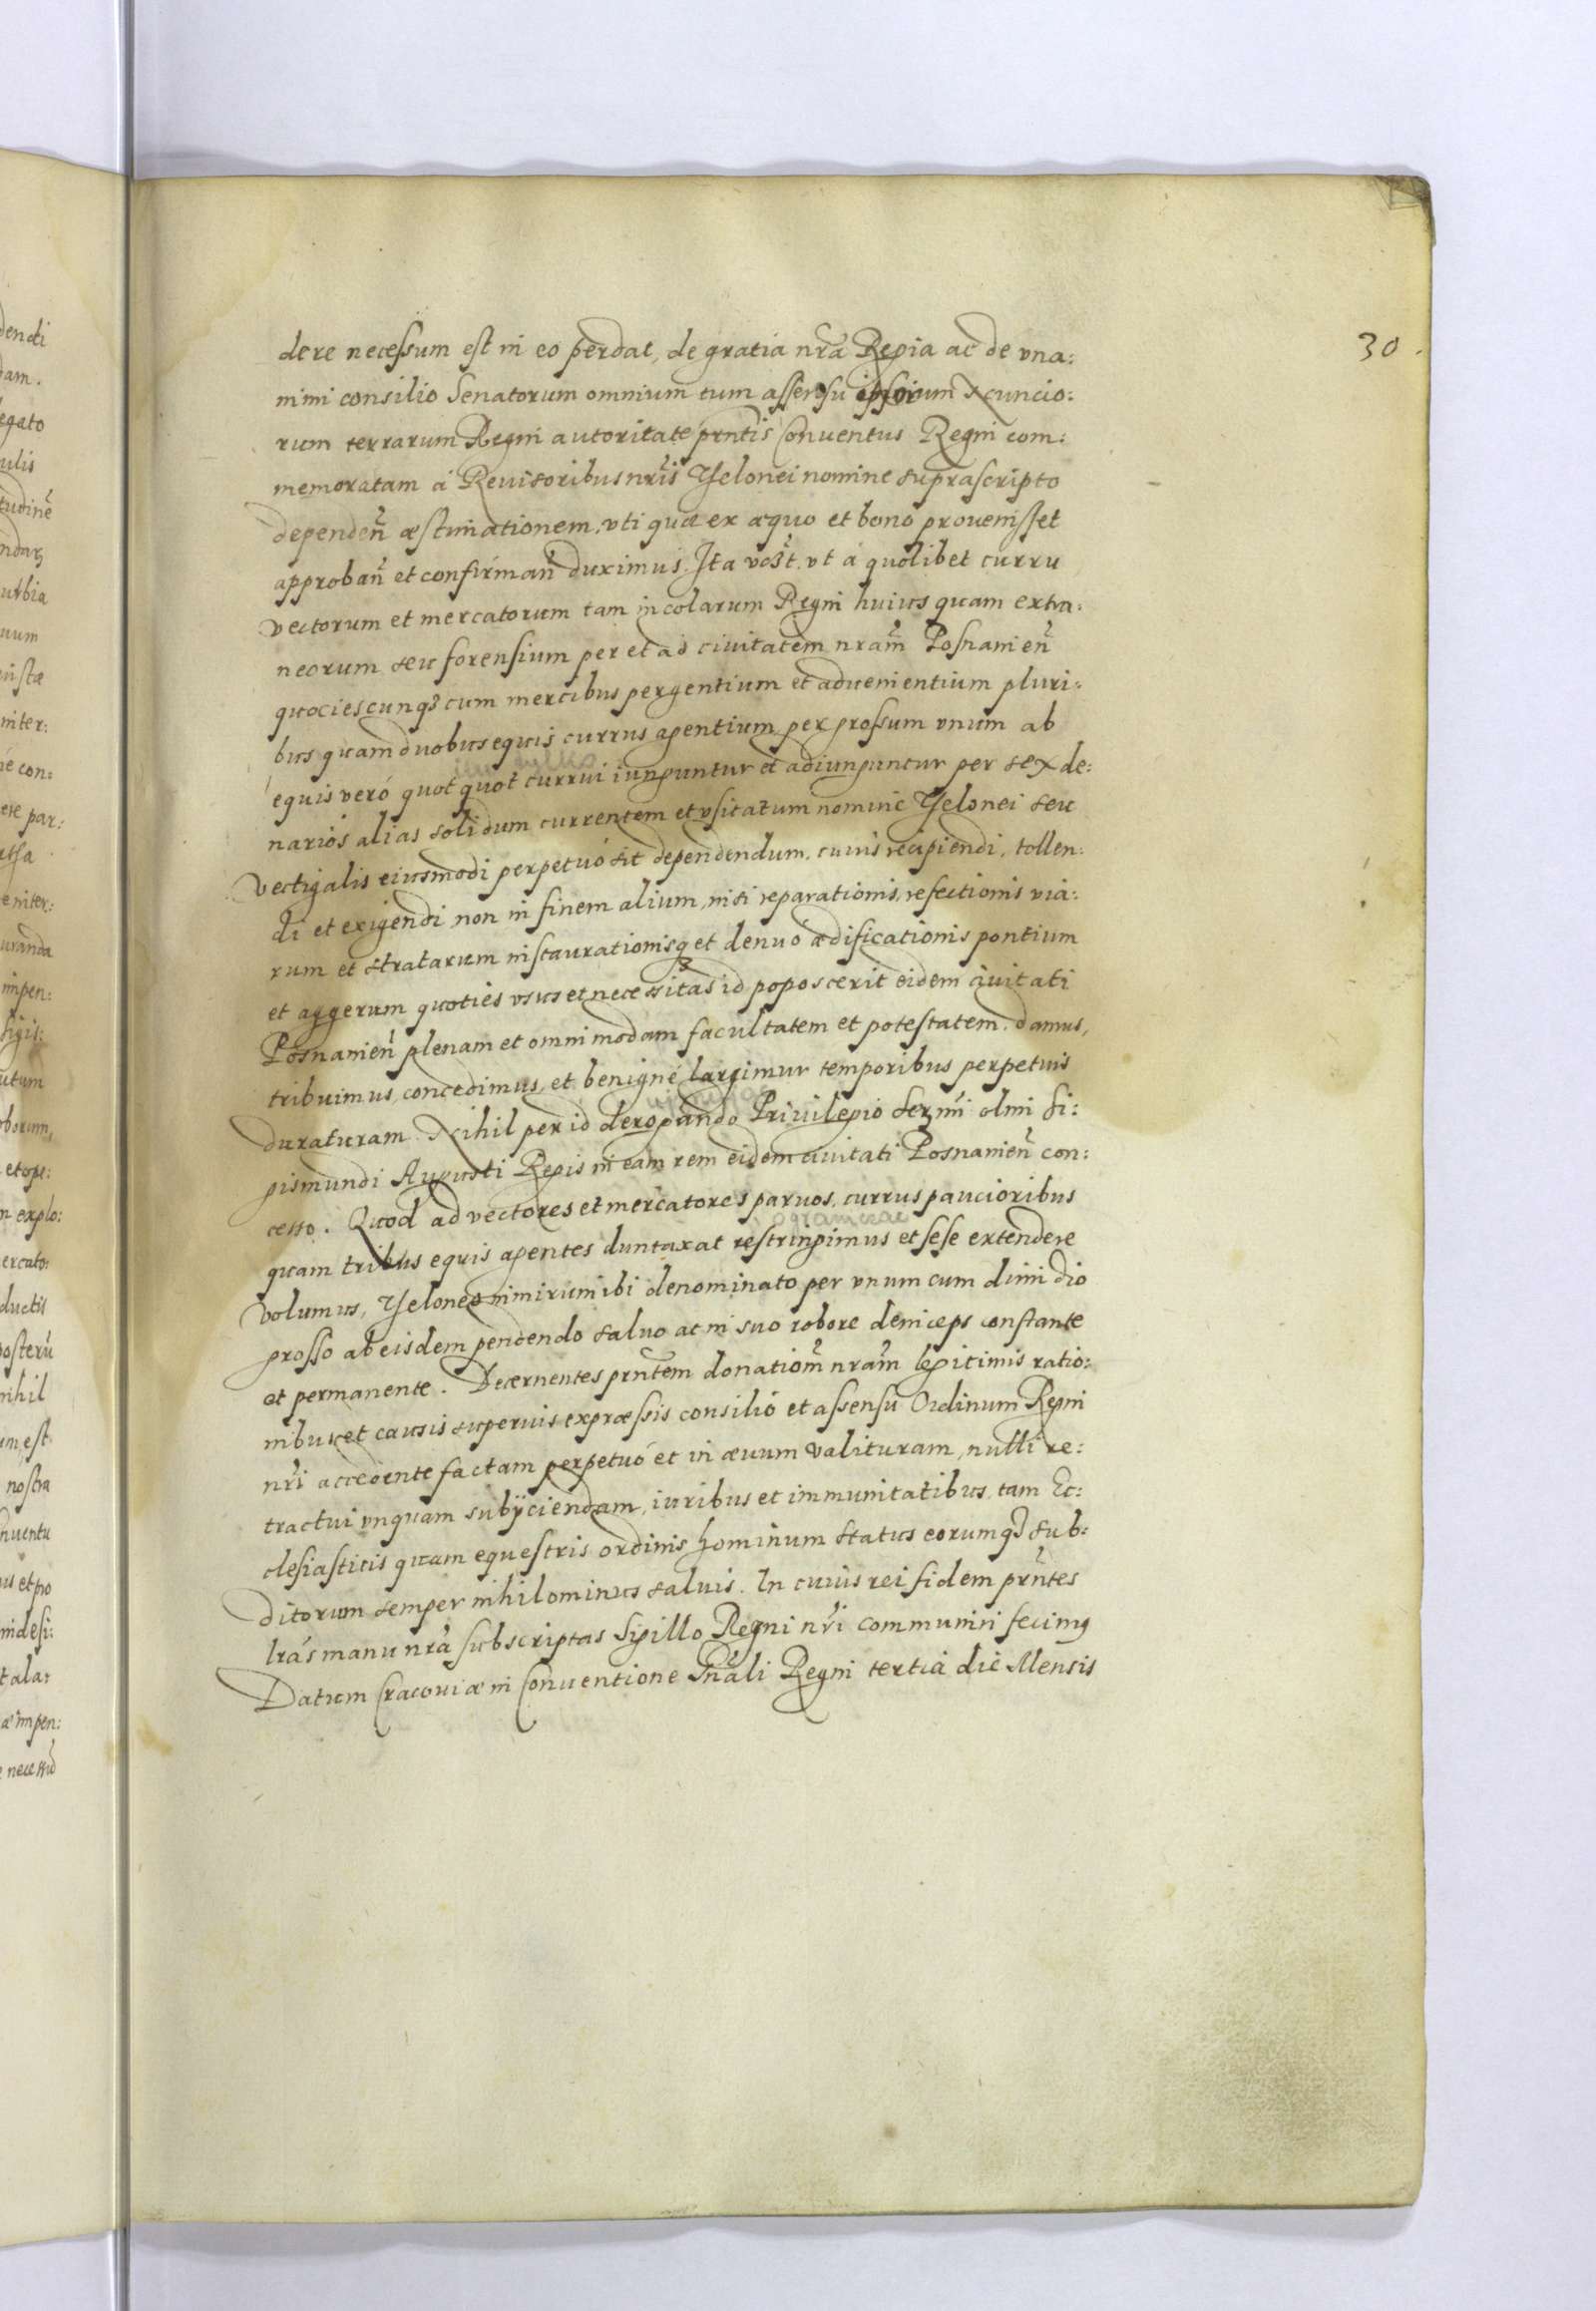 30.
dere necessum est in eo perdat, de gratia nrã Regia ac de vna:
nimi consilio Senatorum omnium tum assensu ipsorum Nuncio:
rum terrarum Regni autoritate prntis Conuentus Regni com:
memoratam á Reuisoribus nrĩs Thelonei nomine suprascripto
dependeñ æstimationem, vti quæ ex æquo et bono prouenisset
approbañ et confirmañ duximus. Ita vt á quolibet curru
vectorum et mercatorum tam incolarum Regni huius quam extra:
neorum seu forensium per et ad ciuitatem nram̃ Posnanieñ
quociescunq3 cum mercibus pergentium et aduenientium pluri:
bus quam duobus equis currus agentium per grossum vnum ab
equis veró quot quot currui iunguntur et adiunguntur per sex de:
narios alias solidum currentem et vsitatum nomine Thelonei seu
vectigalis eiusmodi perpetuó sit dependendum, cuius recipiendi, tollen:
di et exigendi non in finem alium, nisi reparationis, refectionis via:
rum et stratarum instaurationisq3 et denuó ædificationis pontium
et aggerum quoties vsus et necessitas id poposcerit eidem ciuitati
Posnanieñ plenam et omnimodam facultatem et potestatem damus,
tribuimus, concedimus, et benigné largimur temporibus perpetuis
duraturam. Nihil per id derogando Priuilegio Serzmi olmi Si:
gismundi Augusti Regis in eam rem eidem ciuitati Posnanieñ con:
cesso. Quod ad vectores et mercatores paruos, currus paucioribus
ograniczac
quam tribus equis agentes duntaxat restringimus et sese extendere
volumus, Theloneo nimirum ibi denominato per vnum cum dimidio
grosso ab eisdem pendendo saluo ac in suo robore deinceps constante
et permanente. Decernentes prntem donatiom̃ nram̃ legitimis ratio:
nibus et causis superius expræssis consilió et assensu Ordinum Regni
nrĩ accedente factam perpetuó et in æuum valituram, nulli re:
tractui vnquam subÿciendam, iuribus et immunitatibus, tam Ec:
clesiasticis quam equestris ordinis hominum status eorumq3 sub:
ditorum semper nihilominus saluis. In cuius rei fidem prñtes
lrás manu nrã subscriptas Sigillo Regni nrĩ communiri fecimus
Datum Cracouiæ in Conuentione Gnãli Regni tertia die Mensis